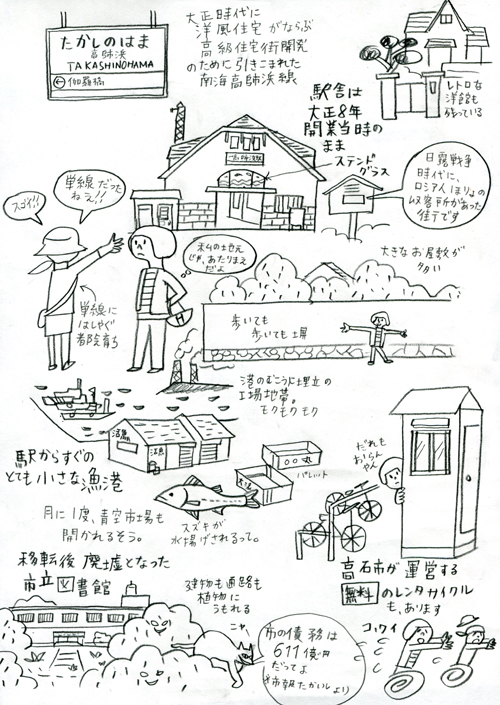 たかしのはま
高師浜
TAKASHINOHAMA
← 伽羅橋
大正時代に
洋風住宅がならぶ
高級住宅街開発
のために引きこまれた
南海高師浜線
レトロな
洋館も
残っている
駅舎は
大正8年
開業当時の
まま
ステンド
グラス
日露戦争
時代に、
ロシア人ほりょの
収容所があった
佳子です
スゴイ!!
単線だった
ねえ!!
私の地元
じゃ、あたりまえ
だよ
単線に
はしゃぐ
都会育ち
大きなお屋敷が
多い
歩いても
歩いても土塀
港のむこうに埋立の
工場地帯。
モクモクモク
駅からすぐの
とても小さな漁港
活魚
活魚
パレット
スズキが
水揚げされるって。
月に1度、青空市場も
開かれるそう。
だれも
おらん
やん
高石市が運営する
無料のレンタサイクル
も、あります
移転後廃墟となった
市立図書館
建物も通路も
植物に
うもれる
ニャ
市の債務は
611億円
だってよ
コワイ